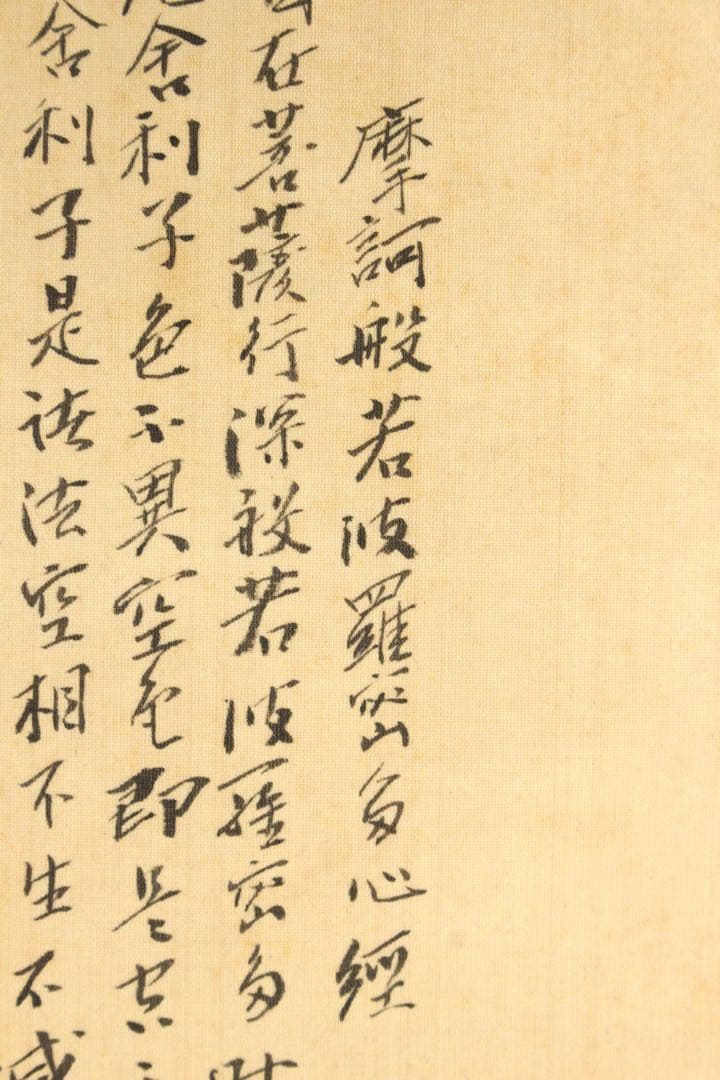 摩訶般若波羅密多心經
在菩薩行深般若波羅密多
舍利子色不異空色即是空
舍利子是諸法空相不生不